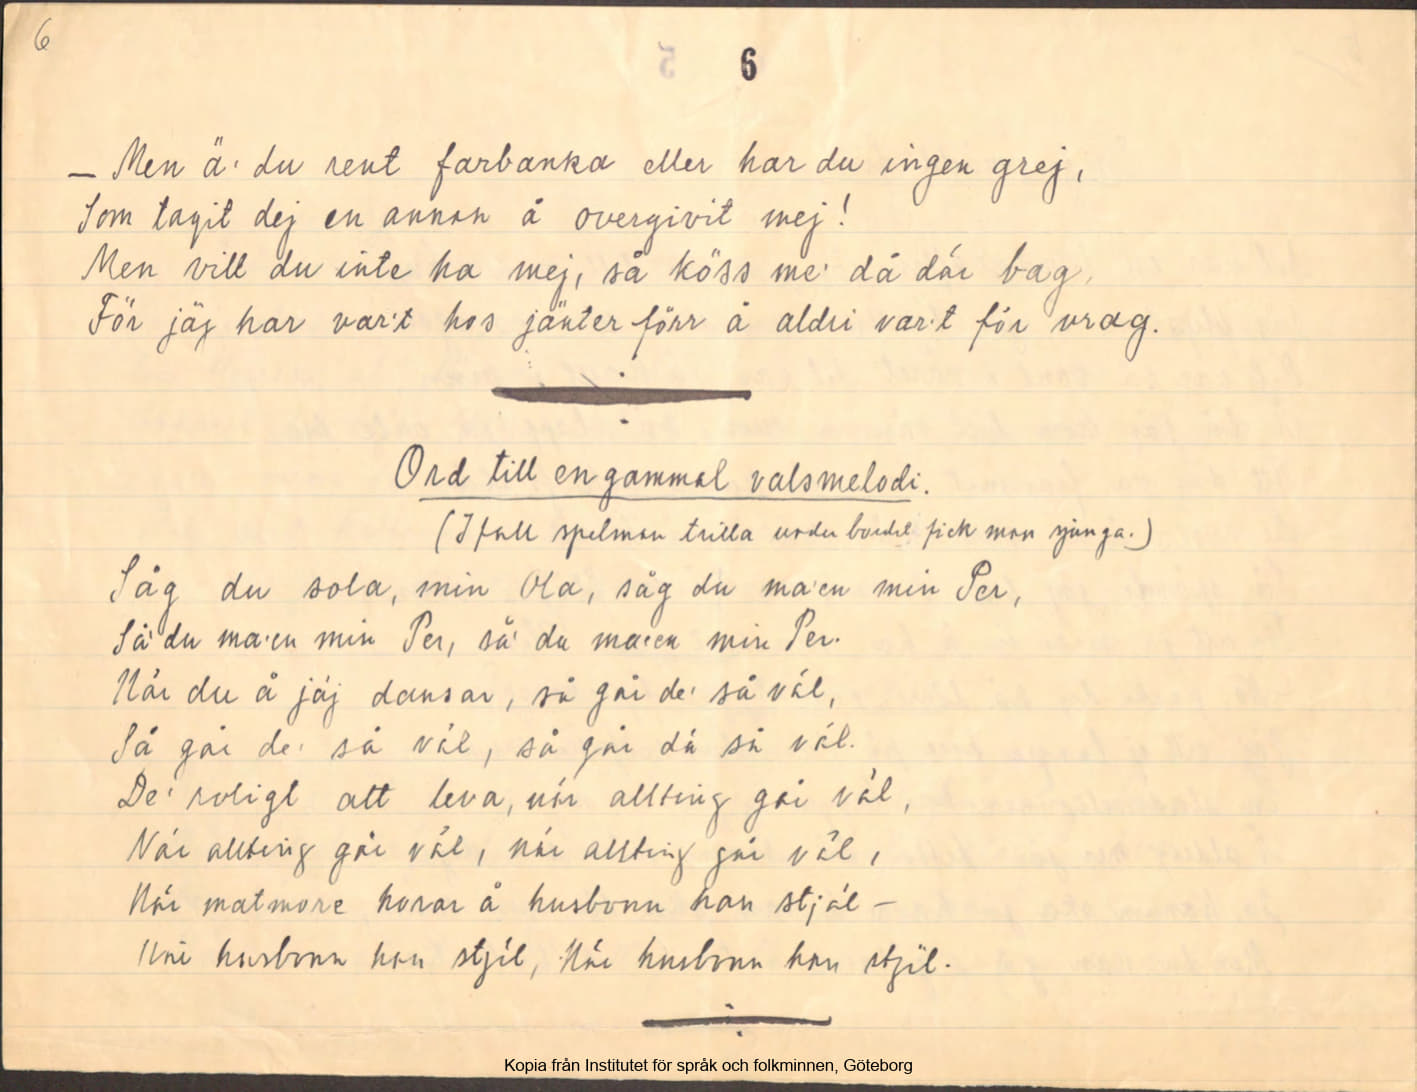 6
6
– Men ä' du rent farbanka eller har du ingen grej,
Som tagit dej en annan å overgivit mej!
Men vill du inte ha mej, så köss me' då där bag,
För jäg har var't hos jänter förr å aldri var't för vrag.
Ord till en gammal valsmelodi.
(Ifall spelman trilla under bordet fick man sjunga.)
Såg du sola, min Ola, såg du ma'en min Per,
Så' du ma'en min Per, så' du ma'en min Per.
När du å jäj dansar, så går de' så väl,
Så går de' så väl, så går dä så väl.
De' roligt att leva, när allting går väl,
När allting går väl, när allting går väl,
När matmore horar å husbonn han stjäl –
När husbonn han stjäl, När husbonn han stjäl.
Kopia från Institutet för språk och folkminnen, Göteborg